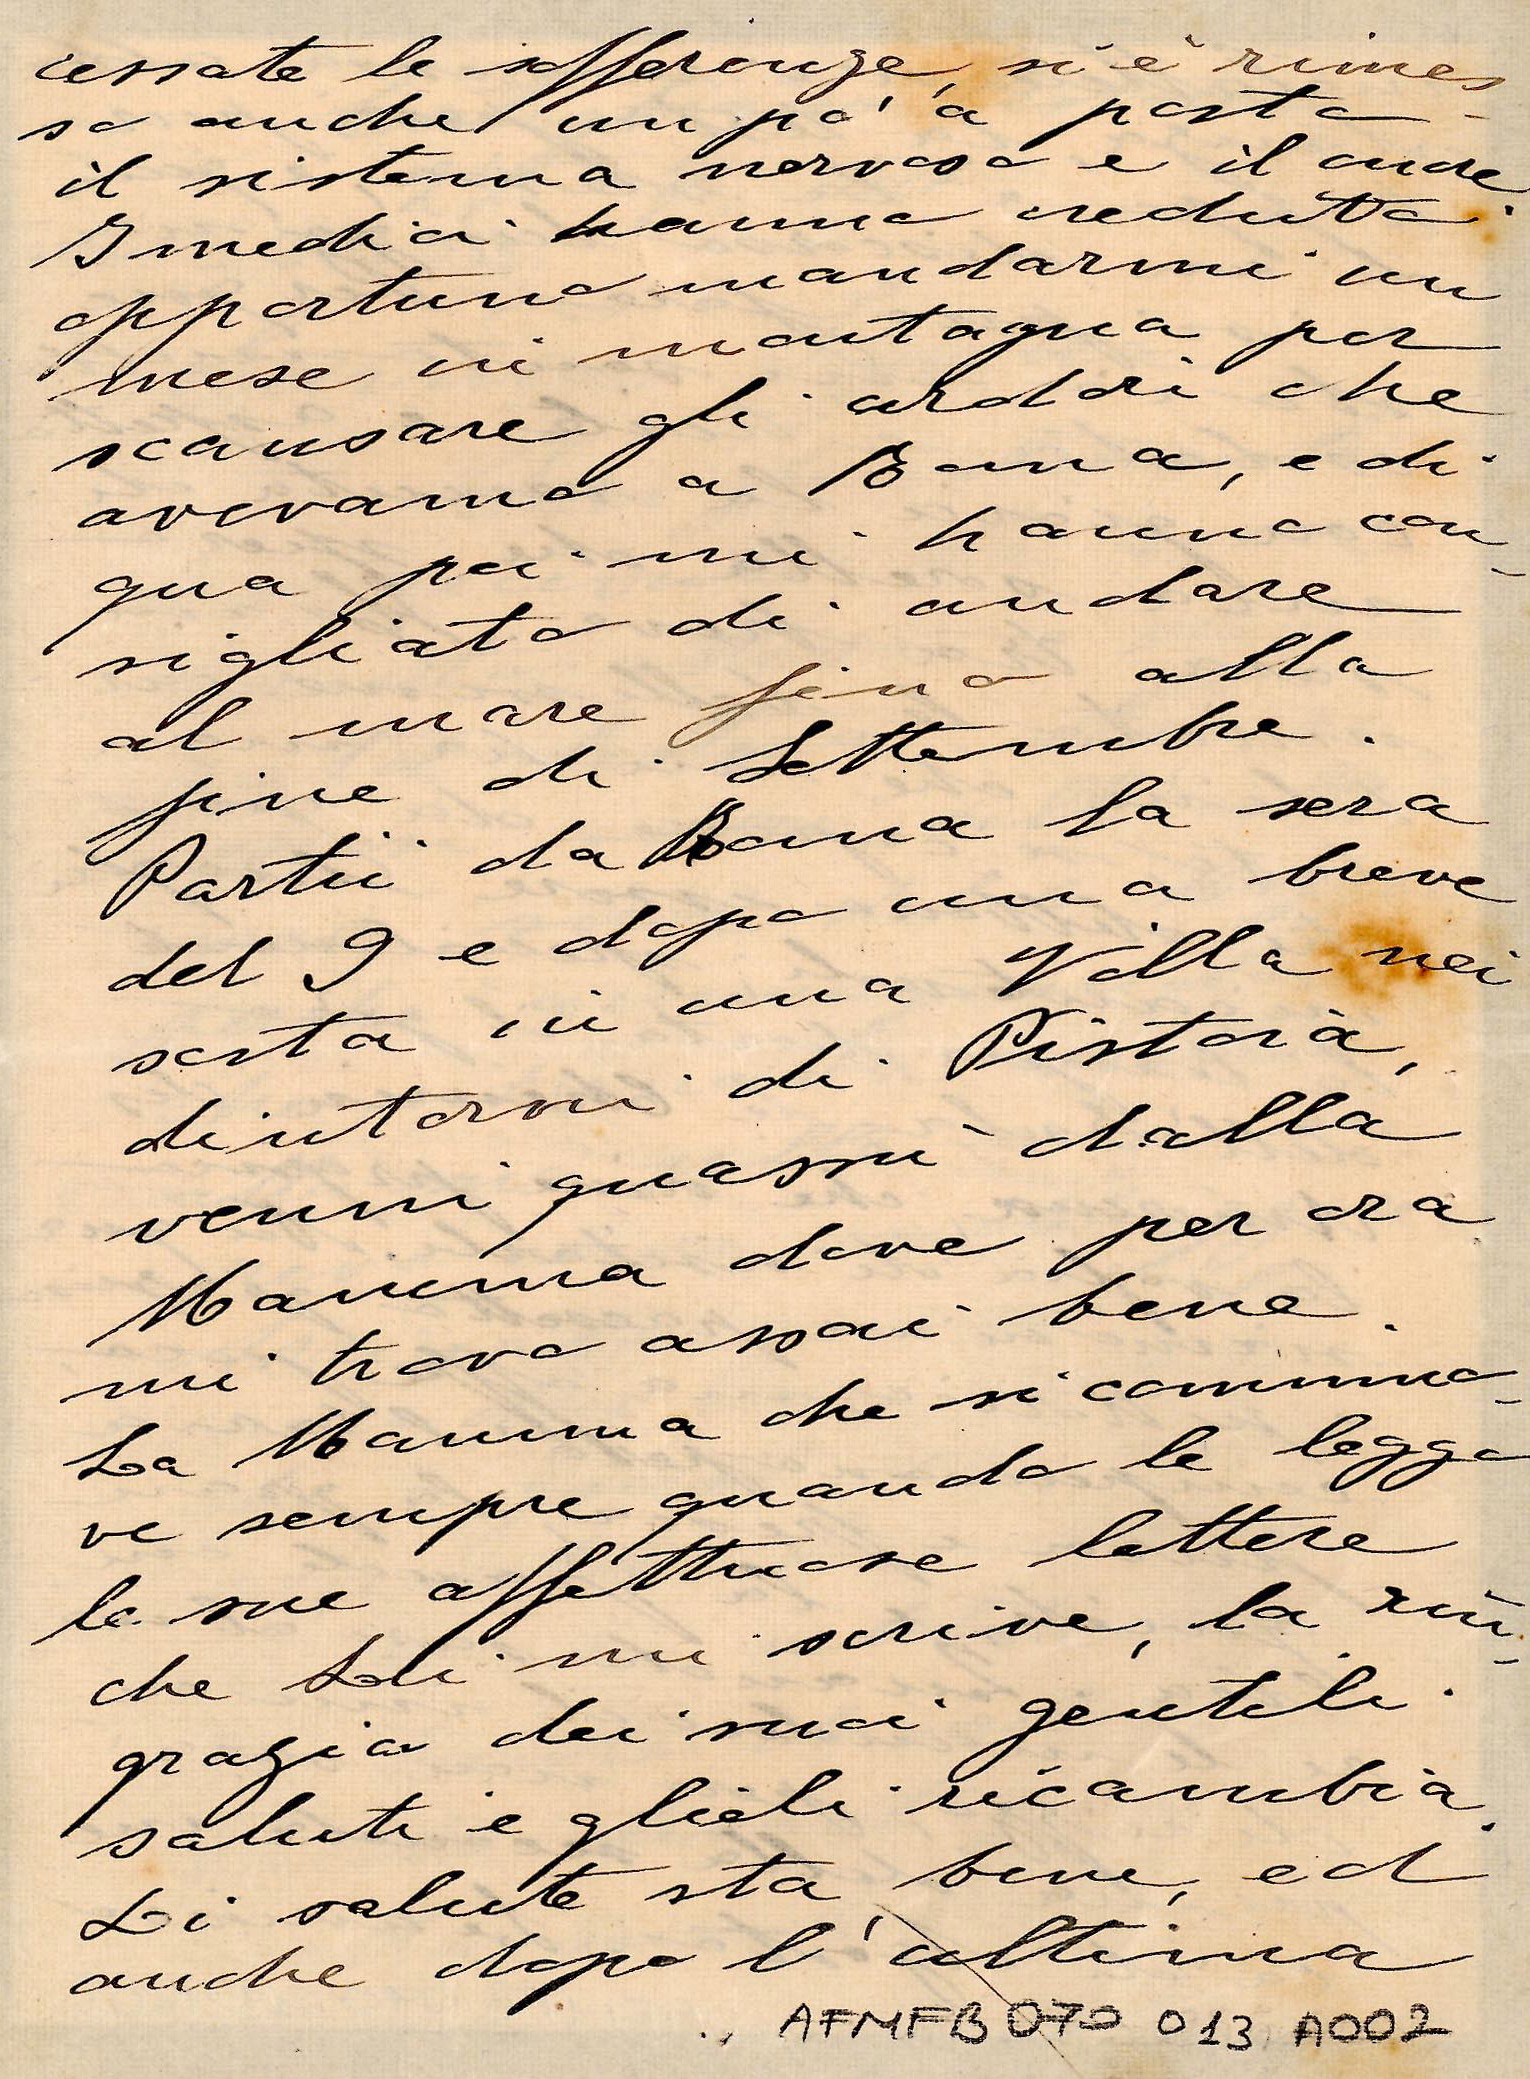 cessate le sofferenze, si è rimes
so anche un pò a posto
il sistema nervoso e il cuore.
I medici hanno creduto
opportuno mandarmi un
mese in montagna per
scansare gli ardori che
avevamo a Roma, e di
qua poi mi hanno con-
sigliato di andare
al mare fino alla
fine di Settembre.
Partii da Roma la sera
del 9 e dopo una breve
sosta in una Villa nei
dintorni di Pistoia,
venni quassù dalla
Mamma dove per ora
mi trovo assai bene.
La Mamma che si commuo-
ve sempre quando le leggo
le sue affettuose lettere
che Lei mi scrive, la rin-
grazia dei suoi gentili
saluti e glieli ricambia.
Di salute sta bene, ed
anche dopo l'ultima
AFMFB 070 013 A002